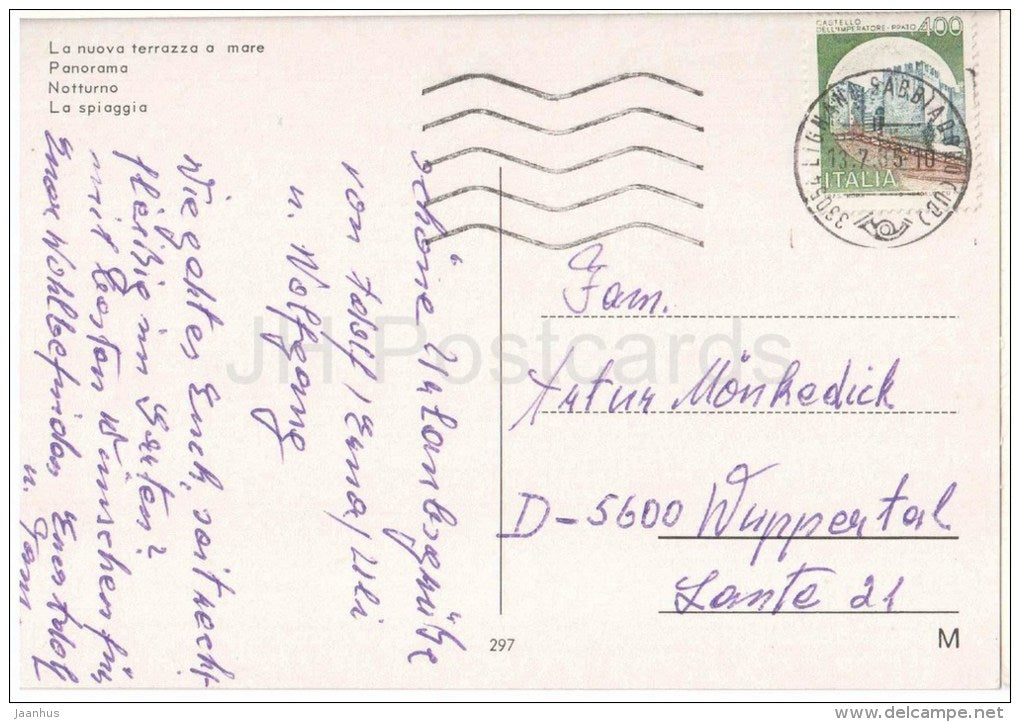 La nuova terrazza a mare
Panorama
Notturno
La spiaggia
CASTELLO
DELL'IMPERATORE - PRATO
400
ITALIA
33054 LIGNANO SABBIADORO (UD)
13.7.85-10
Schöne Urlaubsgrüße
von Adolf, Erna, Uli
u. Wolfgang
Wie geht es Euch, seit noch
fleißig im Garten?
mit besten Wünschen für
Euer Wohlbefinden Euer Adolf
u. Fam.
Fam.
Artur Mönkedick
D-5600 Wuppertal
Lante 21
297
M
JH Postcards
jaanhus
www.delcampe.net